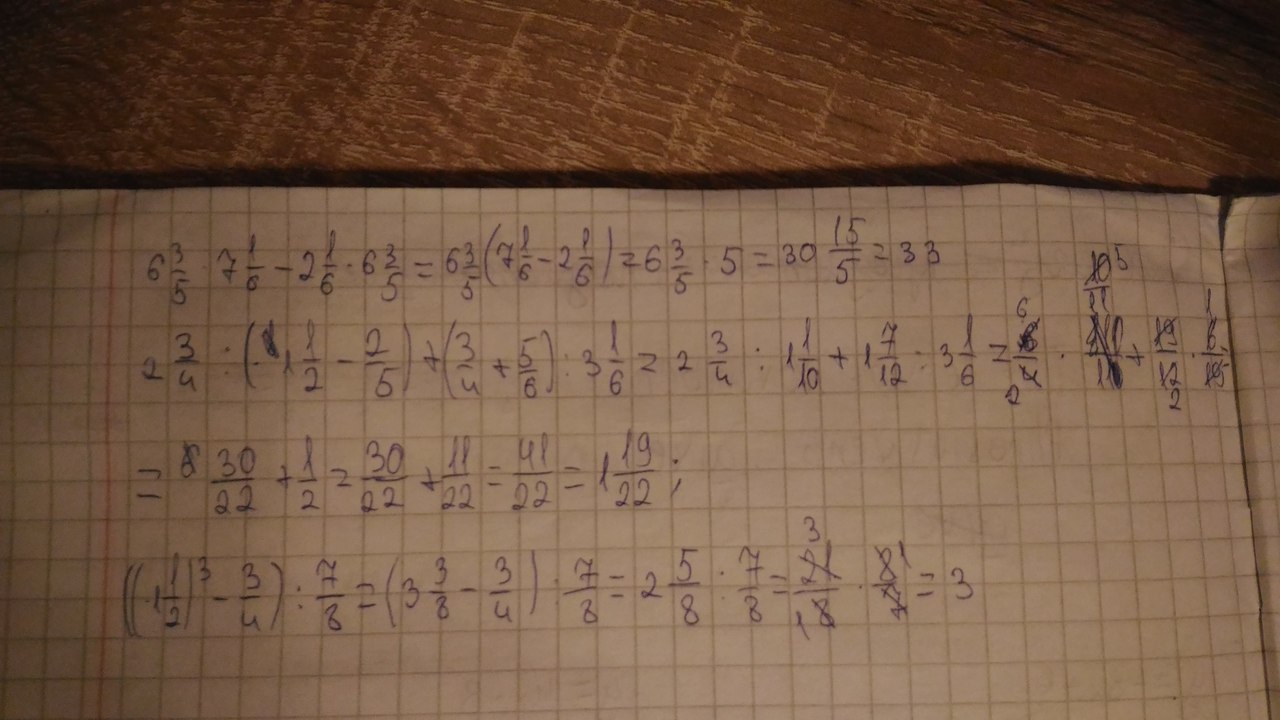 6 3/5 · 7 1/6 − 2 1/6 · 6 3/5 = 6 3/5 (7 1/6 − 2 1/6) = 6 3/5 · 5 = 30 15/5 = 33
2 3/4 : (1 1/2 − 2/5) + (3/4 + 5/6) : 3 1/6 = 2 3/4 : 1 1/10 + 1 7/12 : 3 1/6 = 6/2 · 5/11 + 19/12 · 6/19
= 30/22 + 1/2 = 30/22 + 11/22 = 41/22 = 1 19/22;
((1 1/2)³ − 3/4) : 7/8 = (3 3/8 − 3/4) : 7/8 = 2 5/8 : 7/8 = 21/8 · 8/7 = 3